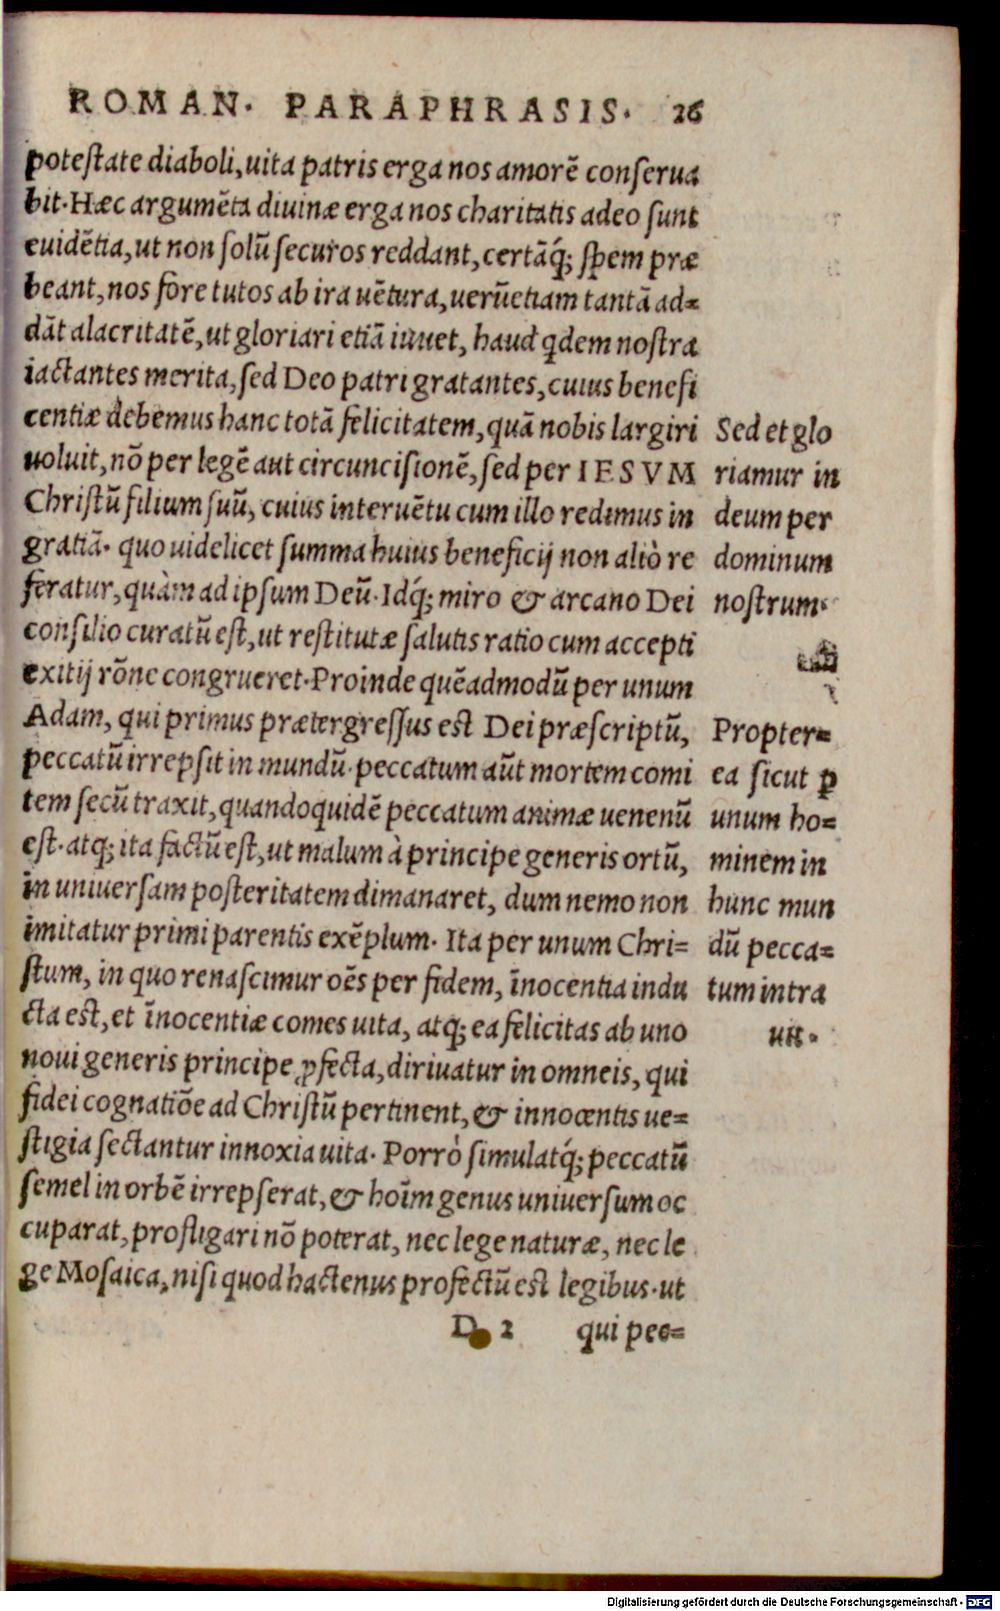 ROMAN. PARAPHRASIS. 26
potestate diaboli, uita patris erga nos amorē conserua
bit. Hæc argumēta diuinæ erga nos charitatis adeo sunt
euidētia, ut non solū securos reddant, certāq́; spem præ
beant, nos fore tutos ab ira uētura, uerūetiam tantā ad=
dāt alacritatē, ut gloriari etiā iuuet, haud qdem nostra
iactantes merita, sed Deo patri gratantes, cuius benefi
centiæ debemus hanc totā felicitatem, quā nobis largiri
uoluit, nō per legē aut circuncisionē, sed per IESVM
Christū filium suū, cuius interuētu cum illo redimus in
gratiā. quo uidelicet summa huius beneficij non aliò re
feratur, quàm ad ipsum Deū. Idq́; miro & arcano Dei
consilio curatū est, ut restitutæ salutis ratio cum accepti
exitij rōne congrueret. Proinde quēadmodū per unum
Adam, qui primus prætergressus est Dei præscriptū,
peccatū irrepsit in mundū. peccatum aūt mortem comi
tem secū traxit, quandoquidē peccatum animæ uenenū
est. atq; ita factū est, ut malum à principe generis ortū,
in uniuersam posteritatem dimanaret, dum nemo non
imitatur primi parentis exēplum. Ita per unum Chri=
stum, in quo renascimur oēs per fidem, īnocentia indu
cta est, et īnocentiæ comes uita, atq; ea felicitas ab uno
noui generis principe ꝓfecta, diriuatur in omneis, qui
fidei cognatiōe ad Christū pertinent, & innocentis ue=
stigia sectantur innoxia uita. Porrò simulatq́; peccatū
semel in orbē irrepserat, & hoīm genus uniuersum oc
cuparat, profligari nō poterat, nec lege naturæ, nec le
ge Mosaica, nisi quod hactenus profectū est legibus. ut
D 2 qui pec=
Sed et glo
riamur in
deum per
dominum
nostrum.
Propter=
ea sicut ꝑ
unum ho=
minem in
hunc mun
dū pecca=
tum intra
uit.
Digitalisierung gefördert durch die Deutsche Forschungsgemeinschaft - DFG